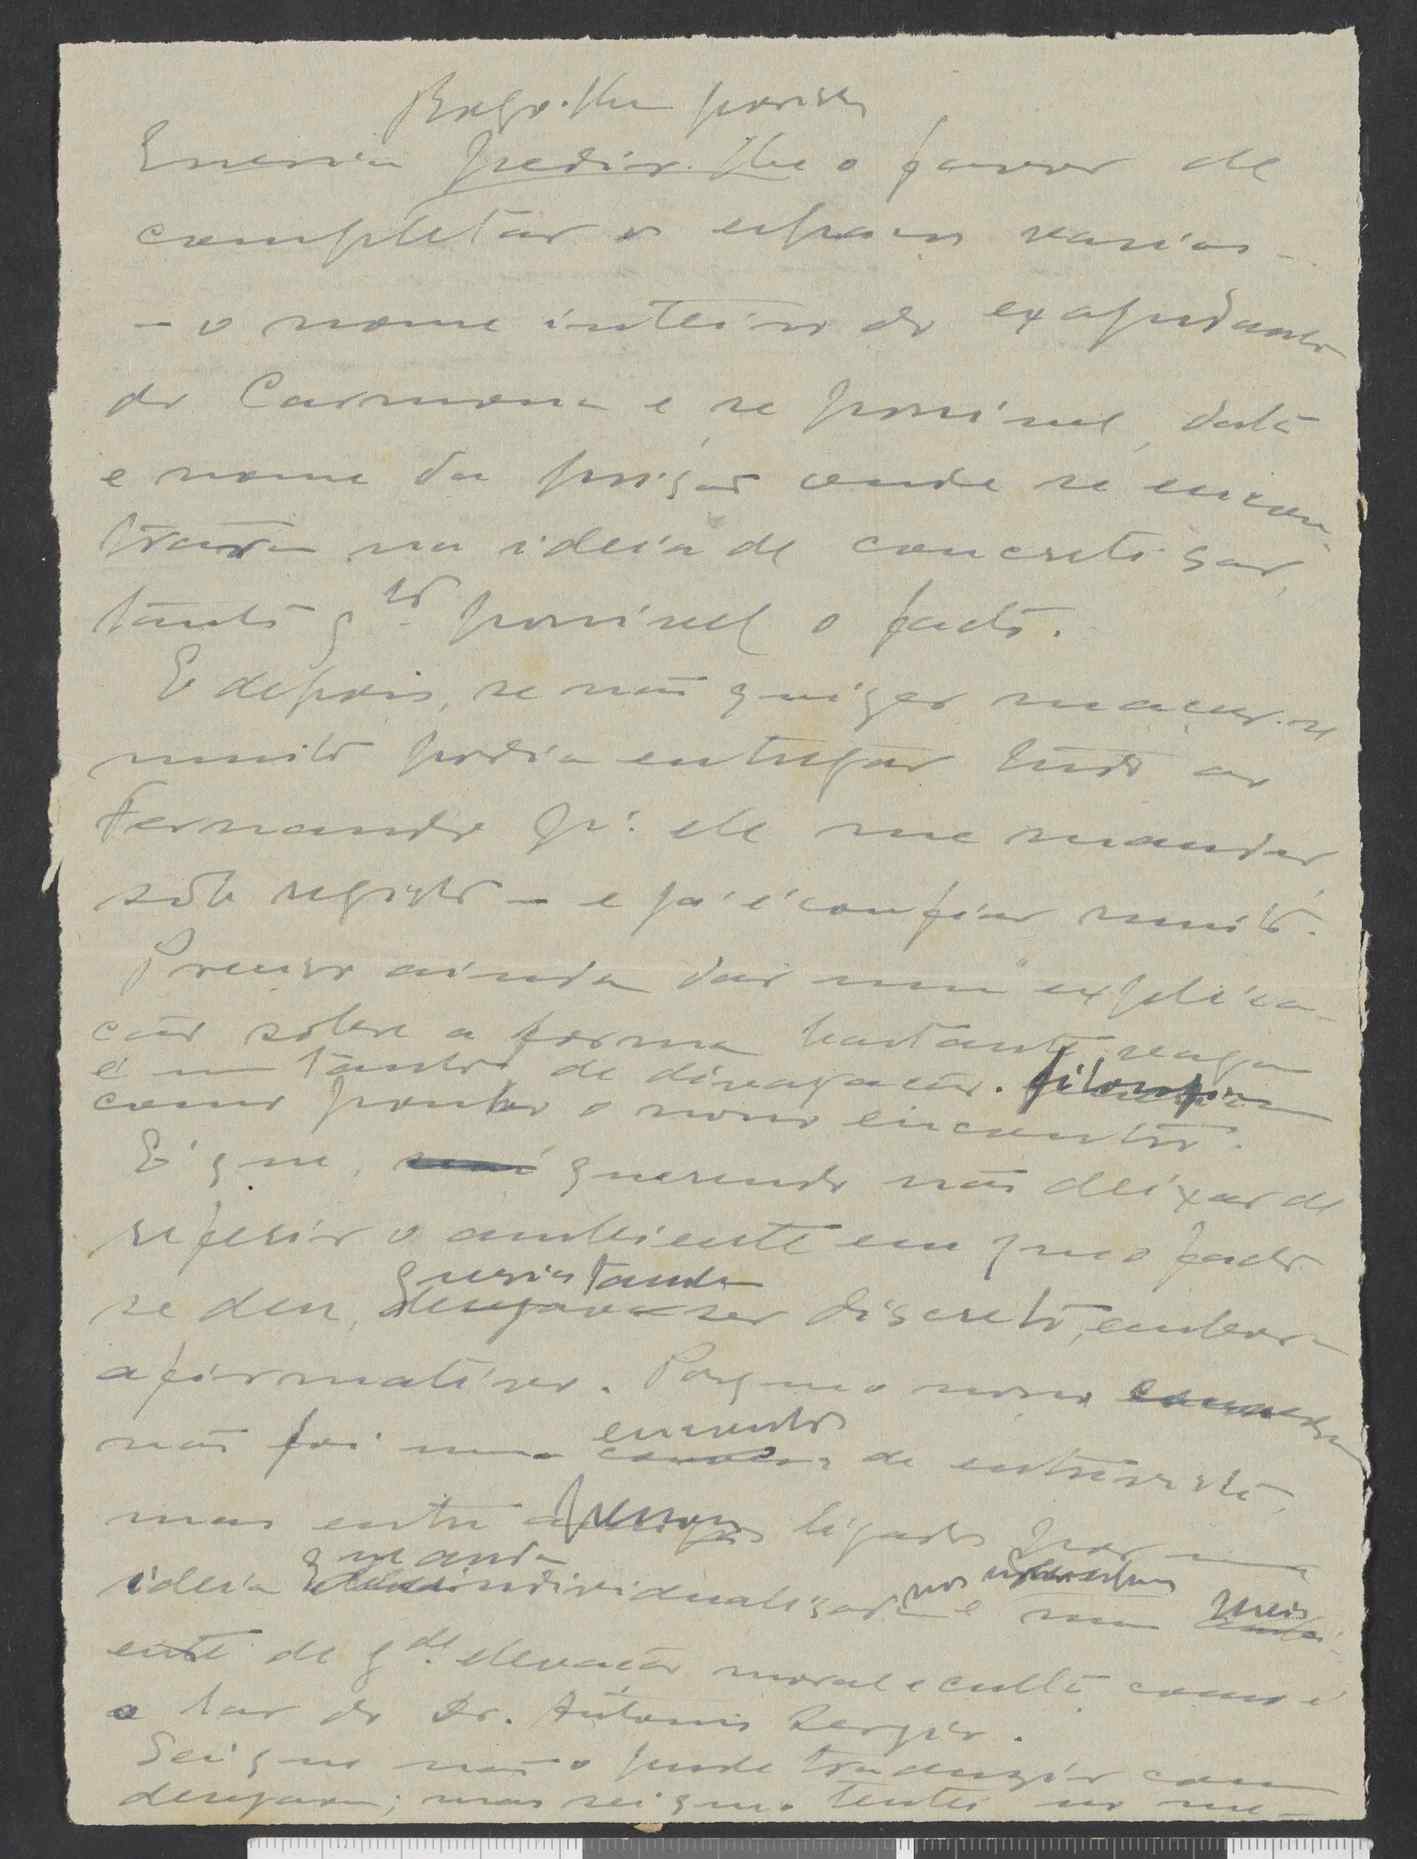 Rogo-lhe
Queria pedir-lhe o favor de
completar os espaços vazios -
- o nome inteiro do ex ajudante
do Carmona e se possivel, data
e nome da prisão onde se encon-
trava na ideia de concretisar,
tanto qto possivel o facto.
E depois, se não quizer maçar-se
muito podia entregar tudo ao
Fernando pª ele me mandar
sob registo - e já é confiar muito.
Preciso ainda dar uma explica-
ção sobre a forma bastante vaga
e um tanto de divagação. filosofica
como ponho o nosso encontro.
É que, querendo não deixar de
referir o ambiente em que o facto
se deu, queria tanto ser discreto, embora
afirmativo. Porque o nosso conversa
não foi um encontro de entrevista,
mas entre pessoas ligadas por uma
ideia quando individualisada e num meio
ente de gde elevação moral e culta como é
o lar do Dr. António Sergio.
Sei que não o pude traduzir como
desejava; mas sei que o tentei no me-